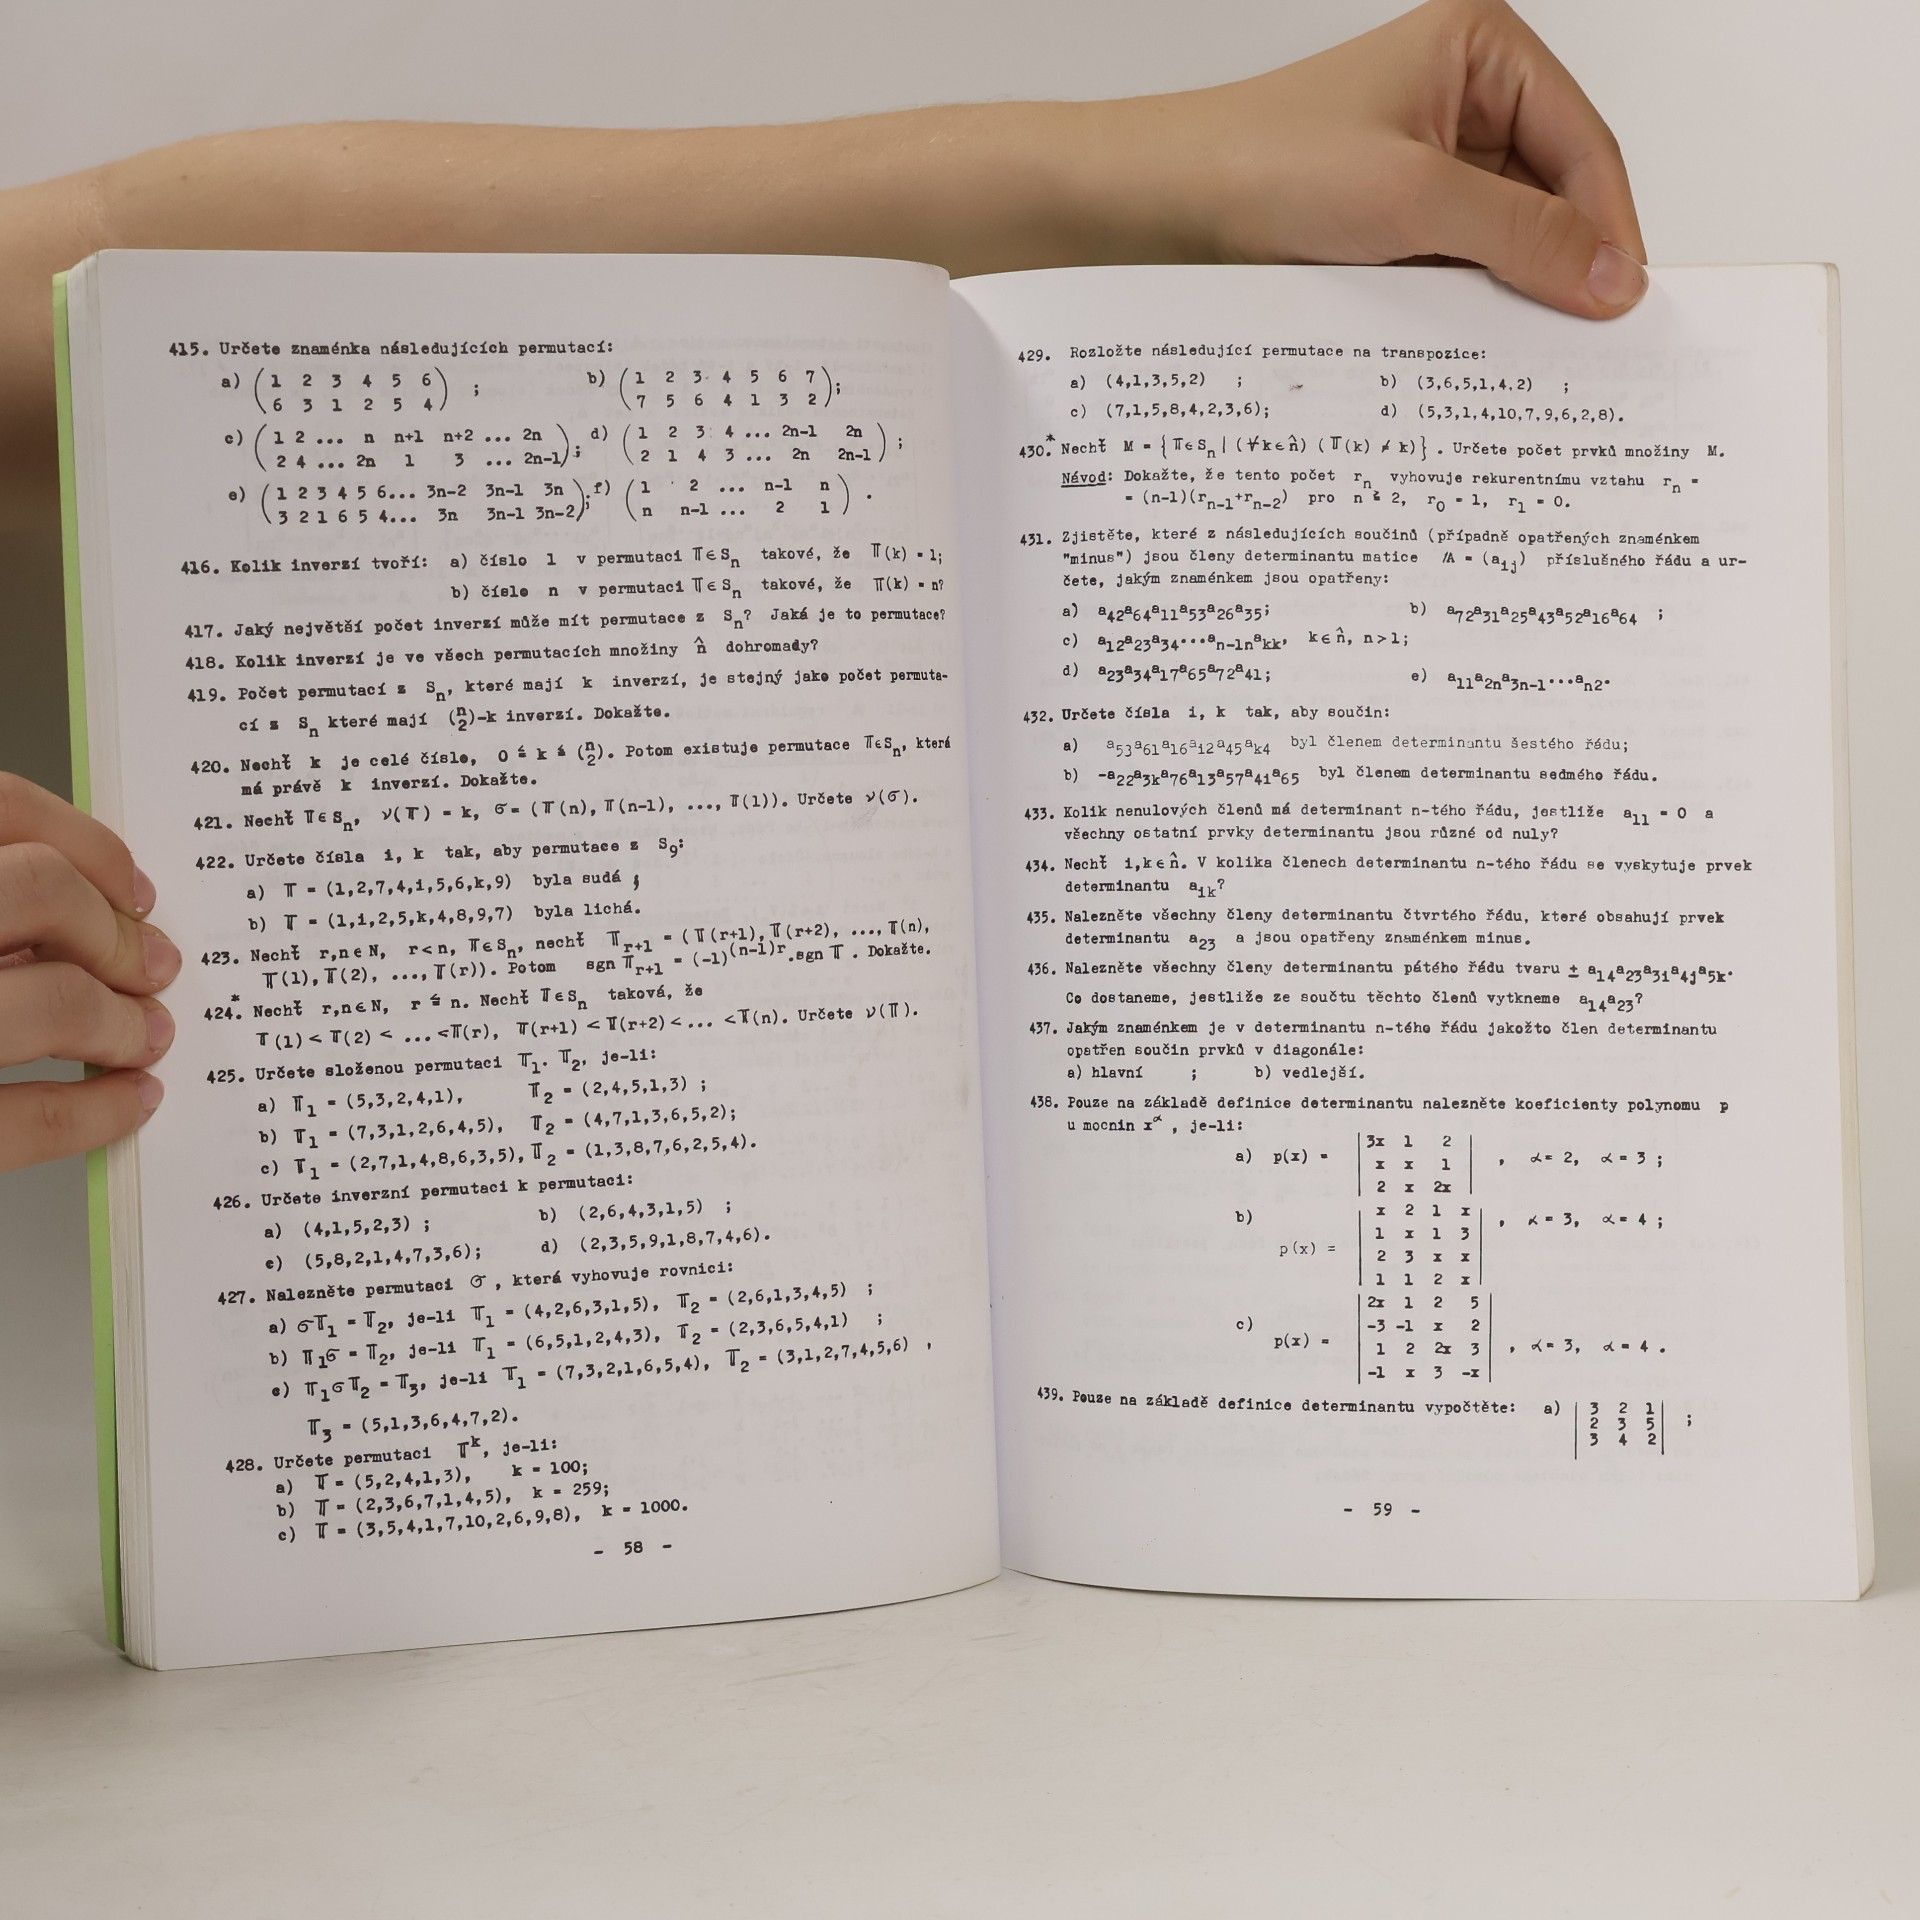 415. Určete znaménka následujících permutací:
a) ( 1 2 3 4 5 6 ) ; b) ( 1 2 3 4 5 6 7 );
6 3 1 2 5 4 7 5 6 4 1 3 2
c) ( 1 2 ... n n+1 n+2 ... 2n ); d) ( 1 2 3 4 ... 2n-1 2n ) ;
2 4 ... 2n 1 3 ... 2n-1 2 1 4 3 ... 2n 2n-1
e) ( 1 2 3 4 5 6... 3n-2 3n-1 3n ); f) ( 1 2 ... n-1 n ) .
3 2 1 6 5 4... 3n 3n-1 3n-2 n n-1 ... 2 1
416. Kolik inverzí tvoří: a) číslo 1 v permutaci π∈Sₙ takové, že π(k) = 1;
b) číslo n v permutaci π∈Sₙ takové, že π(k) = n?
417. Jaký největší počet inverzí může mít permutace z Sₙ? Jaká je to permutace?
418. Kolik inverzí je ve všech permutacích množiny n̂ dohromady?
419. Počet permutací z Sₙ, které mají k inverzí, je stejný jako počet permuta-
cí z Sₙ které mají (n 2)-k inverzí. Dokažte.
420. Nechť k je celé číslo, 0 ≤ k ≤ (n 2). Potom existuje permutace π∈Sₙ, která
má právě k inverzí. Dokažte.
421. Nechť π∈Sₙ, ν(π) = k, σ= (π(n),π(n-1), ...,π(1)). Určete ν(σ).
422. Určete čísla i, k tak, aby permutace z S₉:
a) π = (1,2,7,4,i,5,6,k,9) byla sudá ;
b) π = (1,i,2,5,k,4,8,9,7) byla lichá.
423. Nechť r,n∈N, r<n, π∈Sₙ, nechť πᵣ₊₁ = (π(r+1),π(r+2), ...,π(n),
π(1),π(2), ...,π(r)). Potom sgn πᵣ₊₁ = (-1)⁽ⁿ⁻¹⁾ʳ.sgn π . Dokažte.
424.* Nechť r,n∈N, r ≤ n. Nechť π∈Sₙ taková, že
π(1)<π(2)< ...<π(r), π(r+1)<π(r+2)<... <π(n). Určete ν(π).
425. Určete složenou permutaci π₁. π₂, je-li:
a) π₁ = (5,3,2,4,1), π₂ = (2,4,5,1,3) ;
b) π₁ = (7,3,1,2,6,4,5), π₂ = (4,7,1,3,6,5,2);
c) π₁ = (2,7,1,4,8,6,3,5), π₂ = (1,3,8,7,6,2,5,4).
426. Určete inverzní permutaci k permutaci:
a) (4,1,5,2,3) ; b) (2,6,4,3,1,5) ;
c) (5,8,2,1,4,7,3,6); d) (2,3,5,9,1,8,7,4,6).
427. Nalezněte permutaci σ , která vyhovuje rovnici:
a) σπ₁ = π₂, je-li π₁ = (4,2,6,3,1,5), π₂ = (2,6,1,3,4,5) ;
b) π₁σ = π₂, je-li π₁ = (6,5,1,2,4,3), π₂ = (2,3,6,5,4,1) ;
c) π₁σπ₂ = π₃, je-li π₁ = (7,3,2,1,6,5,4), π₂ = (3,1,2,7,4,5,6) ,
π₃ = (5,1,3,6,4,7,2).
428. Určete permutaci πᵏ, je-li:
a) π = (5,2,4,1,3), k = 100;
b) π = (2,3,6,7,1,4,5), k = 259;
c) π = (3,5,4,1,7,10,2,6,9,8), k = 1000.
- 58 -
429. Rozložte následující permutace na transpozice:
a) (4,1,3,5,2) ; b) (3,6,5,1,4,2) ;
c) (7,1,5,8,4,2,3,6); d) (5,3,1,4,10,7,9,6,2,8).
430.* Nechť M = {π∈Sₙ | (∀k∈n̂) (π(k) ≠ k)} . Určete počet prvků množiny M.
Návod: Dokažte, že tento počet rₙ vyhovuje rekurentnímu vztahu rₙ =
= (n-1)(rₙ₋₁+rₙ₋₂) pro n ≥ 2, r₀ = 1, r₁ = 0.
431. Zjistěte, které z následujících součinů (případně opatřených znaménkem
"minus") jsou členy determinantu matice A = (aᵢⱼ) příslušného řádu a ur-
čete, jakým znaménkem jsou opatřeny:
a) a₄₂a₆₄a₁₁a₅₃a₂₆a₃₅; b) a₇₂a₃₁a₂₅a₄₃a₅₂a₁₆a₆₄ ;
c) a₁₂a₂₃a₃₄...aₙ₋₁ₙaₖₖ, k∈n̂, n>1;
d) a₂₃a₃₄a₁₇a₆₅a₇₂a₄₁; e) a₁₁a₂ₙa₃ₙ₋₁...aₙ₂.
432. Určete čísla i, k tak, aby součin:
a) a₅₃a₆₁a₁₆aᵢ₂a₄₅aₖ₄ byl členem determinantu šestého řádu;
b) -a₂₂a₃ₖa₇₆aᵢ₃a₅₇a₄₁a₆₅ byl členem determinantu sedmého řádu.
433. Kolik nenulových členů má determinant n-tého řádu, jestliže a₁₁ = 0 a
všechny ostatní prvky determinantu jsou různé od nuly?
434. Nechť i,k∈n̂. V kolika členech determinantu n-tého řádu se vyskytuje prvek
determinantu aᵢₖ?
435. Nalezněte všechny členy determinantu čtvrtého řádu, které obsahují prvek
determinantu a₂₃ a jsou opatřeny znaménkem minus.
436. Nalezněte všechny členy determinantu pátého řádu tvaru ± a₁₄a₂₃a₃ᵢa₄ⱼa₅ₖ.
Co dostaneme, jestliže ze součtu těchto členů vytkneme a₁₄a₂₃?
437. Jakým znaménkem je v determinantu n-tého řádu jakožto člen determinantu
opatřen součin prvků v diagonále:
a) hlavní ; b) vedlejší.
438. Pouze na základě definice determinantu nalezněte koeficienty polynomu p
u mocnin x^α , je-li:
3x 1 2
a) p(x) = x x 1 , α= 2, α= 3 ;
2 x 2x
b) x 2 1 x , α= 3, α= 4 ;
1 x 1 3
p(x) = 2 3 x x
1 1 2 x
2x 1 2 5
c) -3 -1 x 2
p(x) = 1 2 2x 3 , α= 3, α= 4 .
-1 x 3 -x
439. Pouze na základě definice determinantu vypočtěte: a) 3 2 1
2 3 5 ;
3 4 2
- 59 -